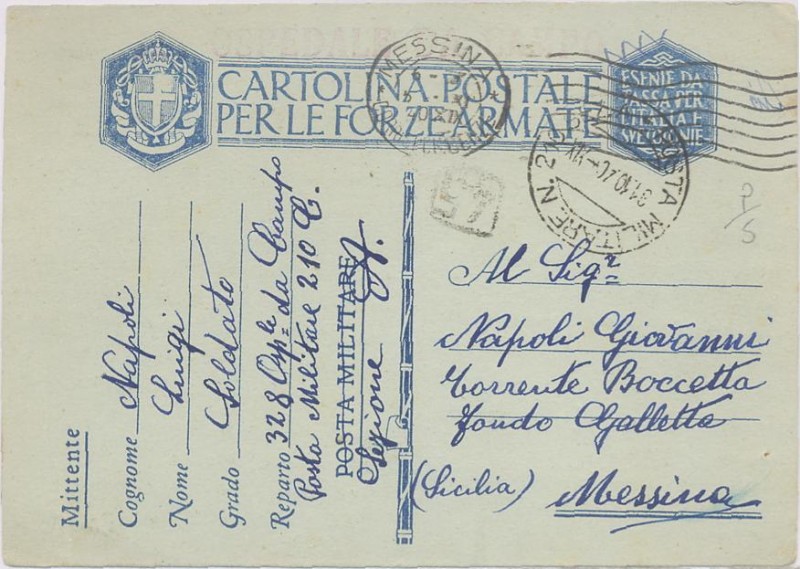 OSPEDALE
CARTOLINA POSTALE
PER LE FORZE ARMATE
ESENTE DA
TASSA PER
SVERNIE
MESSINA
POSTA MILITARE N. 210
31.10.40-XIX
P/S
Mittente
Cognome Napoli
Nome Luigi
Grado Soldato
Reparto 328 Osp.le da Campo
Posta Militare 210 C.
POSTA MILITARE
Sezione A.
Al Sigr
Napoli Giovanni
Torrente Boccetta
fondo Galletta
(Sicilia) Messina